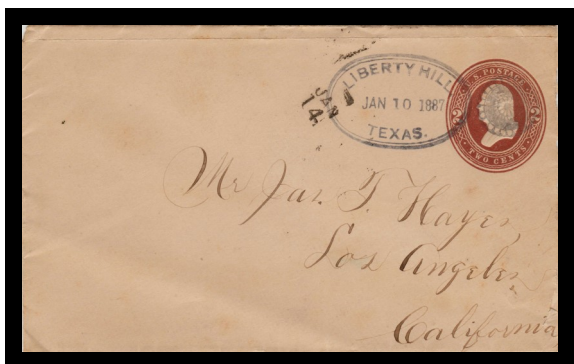 LIBERTY HILL
JAN 10 1887
TEXAS.
JAN
14
U.S. POSTAGE
2 2
TWO CENTS
Mr Jas. T. Hayes,
Los Angeles,
California